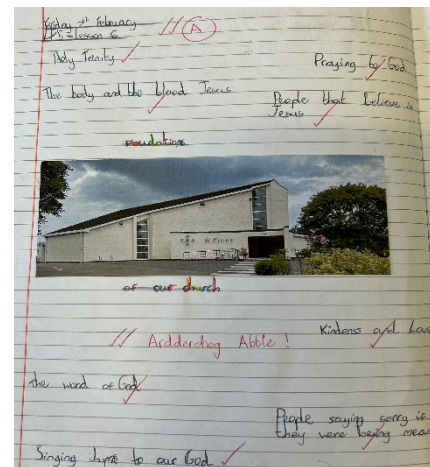 Friday 7th February
Lesson 6
A
Holy Trinity
Praying to God
The body and the blood Jesus
People that believe in
Jesus
Foundations
of our church
Kindness and Love
Ardderchog Abbie !
the word of God
People saying sorry if
they were being mean
Singing to our God